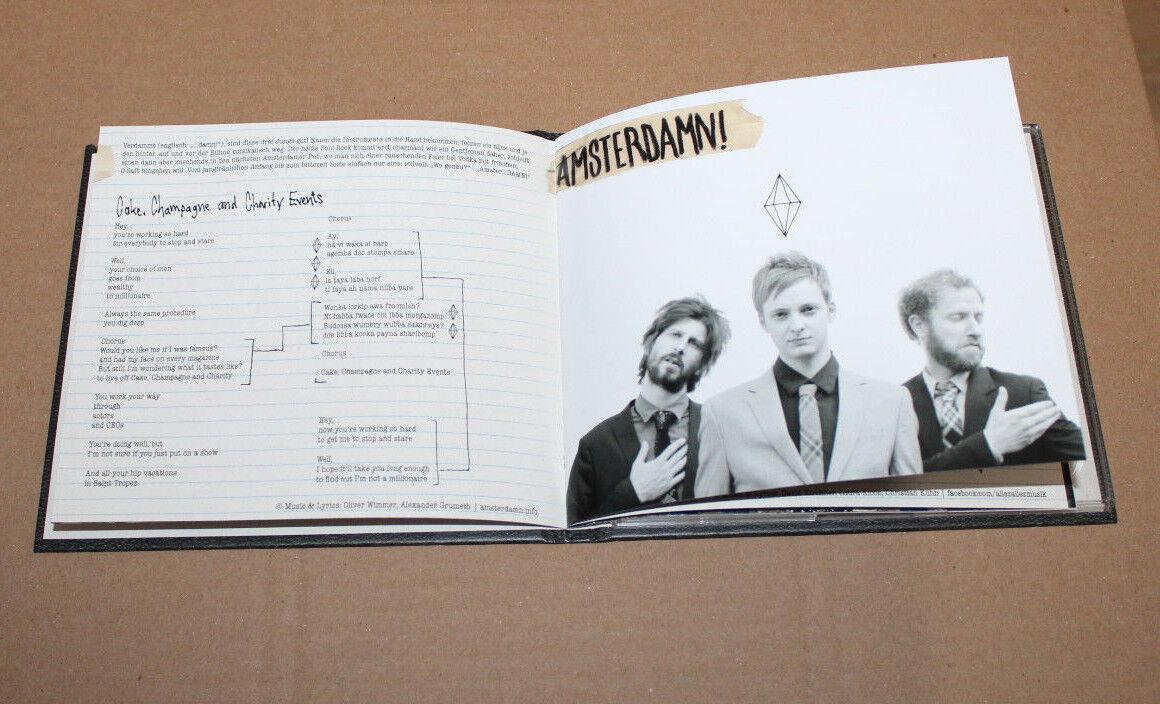 Verdammt (englisch: „...damn!"), sind diese drei Jungs gut! Kaum die Instrumente in die Hand bekommen, rocken sie alles und je-
den hinter, auf und vor der Bühne musikalisch weg. Der heiße Soul-Rock kommt erst charmant wie ein Gentleman daher, schleift
einen dann aber zusehends in den nächsten Amsterdamer Pub, wo man sich einer rauschenden Feier bei Vodka mit frischem
O-Saft hingeben will. Vom jungfräulichen Anfang bis zum bitteren Ende einfach nur eins: stilvoll. „Wo genau?" „Amster...DAMN!"
Cake, Champagne and Charity Events
Hey,
you're working so hard
for everybody to stop and stare
Well,
your choice of men
goes from
wealthy
to millionaire
Always the same procedure
you dig deep
Chorus
Would you like me if I was famous?
and had my face on every magazine
But still I'm wondering what it tastes like?
to live off Cake, Champagne and Charity
You work your way
through
actors
and CEOs
You're doing well, but
I'm not sure if you just put on a show
And all your hip vacations
in Saint Tropez
Chorus
Ay,
na vi waka si harb
agemba doo stompa smare
Eii,
la taya laba norf
ti faya ah nama nilba yare
Wonka lorkip awa froomish?
Nt habba fwace om ibba morgazomp
Budossa wumbry wubba sakos eye?
doe libba kooka payna sharibomp
Chorus
Cake, Champagne and Charity Events
Hey,
now you're working so hard
to get me to stop and stare
Well,
I hope it'll take you long enough
to find out I'm not a millionaire
© Music & Lyrics: Oliver Wimmer, Alexander Grumeth | amsterdamn.info
AMSTERDAMN!
Christian Kühn | facebook.com/allezallezmusik